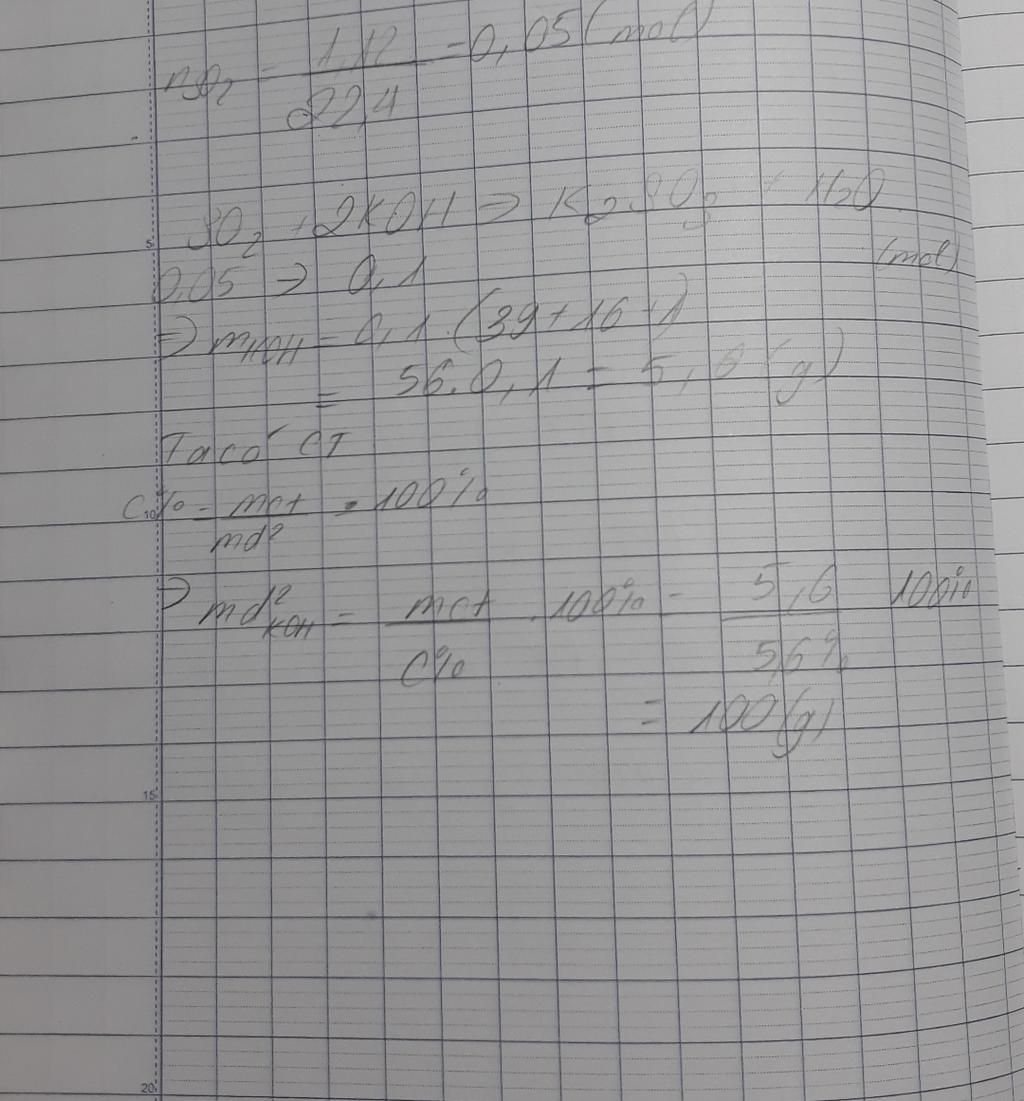 nSO2 = 1,12 / 22,4 = 0,05 (mol)
SO2 + 2KOH => K2SO3 + H2O
0,05 => 0,1 (mol)
=> mKOH = 0,1.(39+16+1)
= 56.0,1 = 5,6 (g)
Ta có CT
C% = mct / md² . 100%
=> md² KOH = mct / C% . 100% = 5,6 / 5,6% 100%
= 100 (g)
5
10
15
20